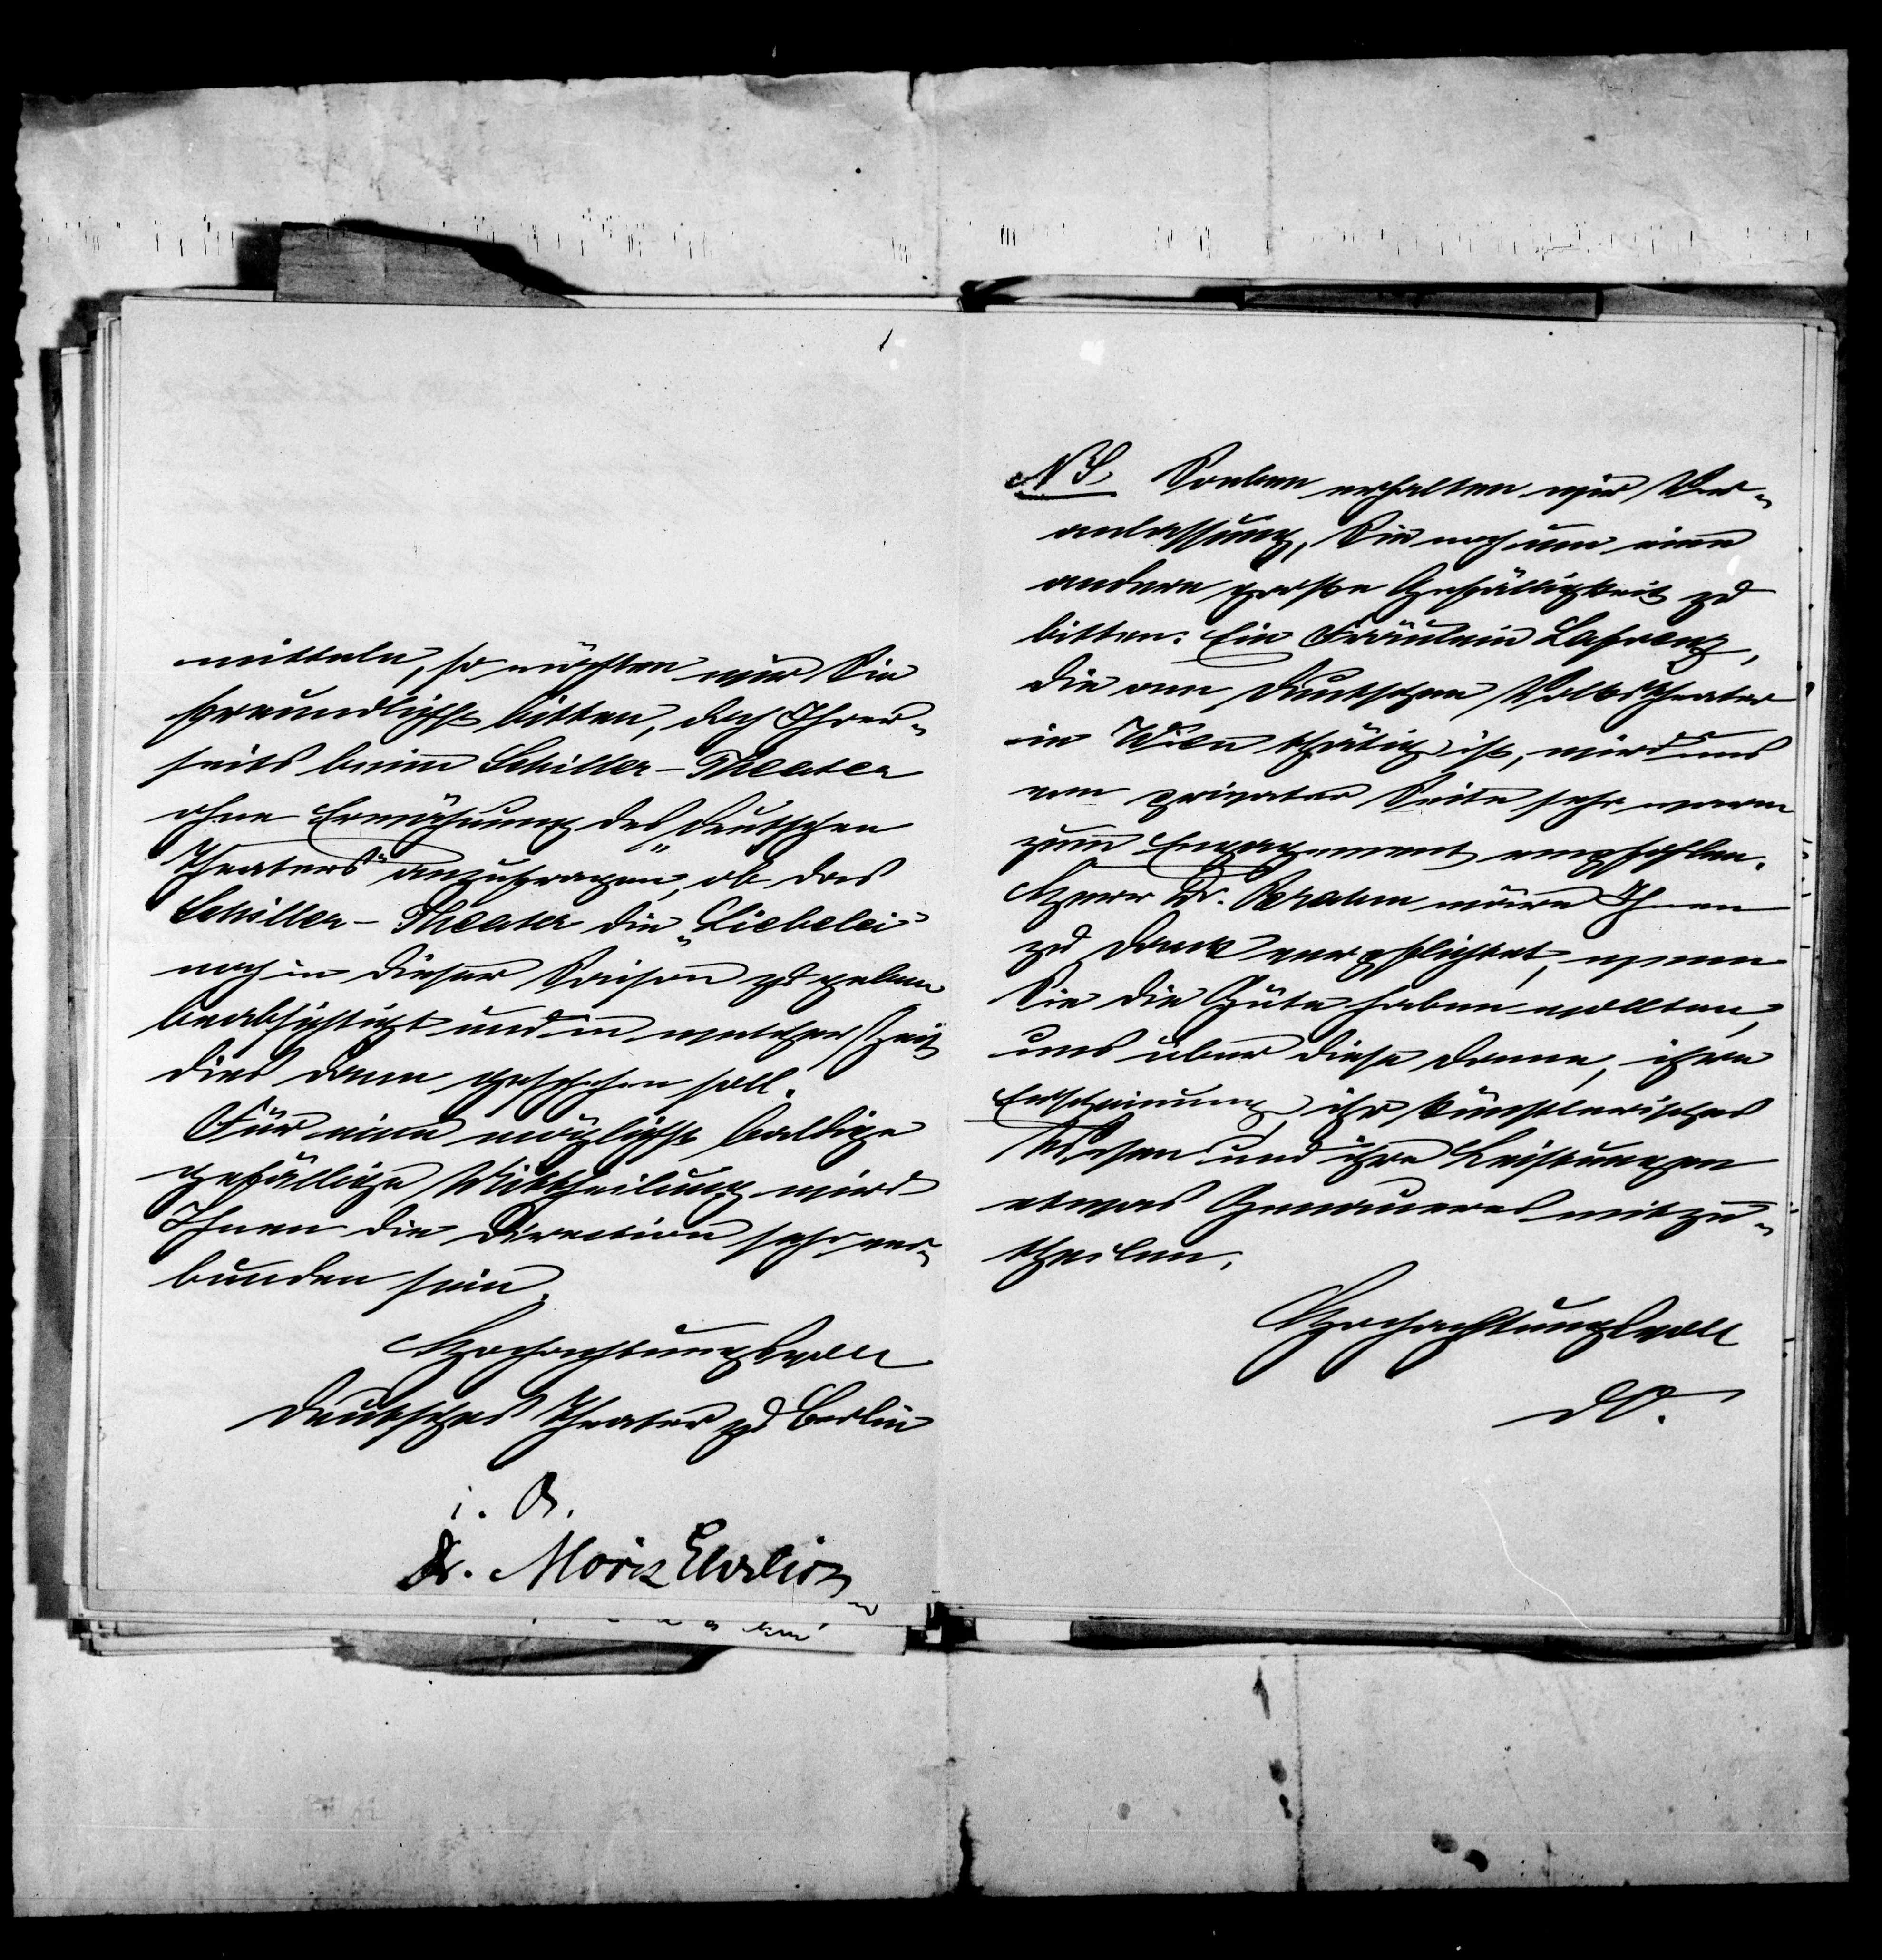 mitteln, so möchten wir Sie
freundlichst bitten, doch Ihrer-
seits beim Schiller-Theater
ohne Erwähnung des „Deutschen
Theaters“ anzufragen, ob das
Schiller-Theater die „Liebelei“
noch in dieser Saison zu geben
beabsichtigt und in welcher Zeit
dies dann geschehen soll.
Für eine möglichst baldige
gefällige Mittheilung wird
Ihnen die Direction sehr ver-
bunden sein.
Hochachtungsvoll
Deutsches Theater zu Berlin
i. A.
Dr. Moriz Ehrlich
NS. Soeben erhalten wir Ver-
anlassung, Sie noch um eine
andere große Gefälligkeit zu
bitten. Ein Fräulein Lafrenz,
die am Deutschen Volkstheater
in Wien thätig ist, wird uns
von privater Seite sehr warm
zum Engagement empfohlen.
Herr Dr. Brahm wäre Ihnen
zu Dank verpflichtet, wenn
Sie die Güte haben wollten,
uns über diese Dame, ihre
Erscheinung, ihr künstlerisches
Wesen und ihre Leistungen
etwas Genaueres mitzu-
theilen.
Hochachtungsvoll
dO.